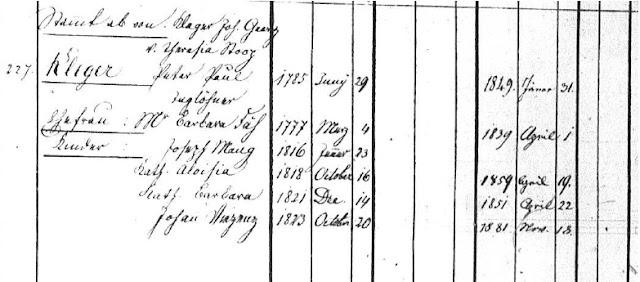 Stammt ab von: Klager Joh. Georg
v. Theresia Stooz
227. Kleger Peter Paul 1785 Juny 29 1849. Jäner 31.
Taglöhner
Ehefrau: Mr Barbara Fäh 1777 Merz 4 1839 April 1
Kinder: Joseph Mang 1816 Jäner 23
Kath. Aloisia 1818 October 16 1859 April 19.
Kath. Barbara 1821 Dec 14 1851 April 22
Johan Vinzenz 1823 October 20 1881 Nov. 18.